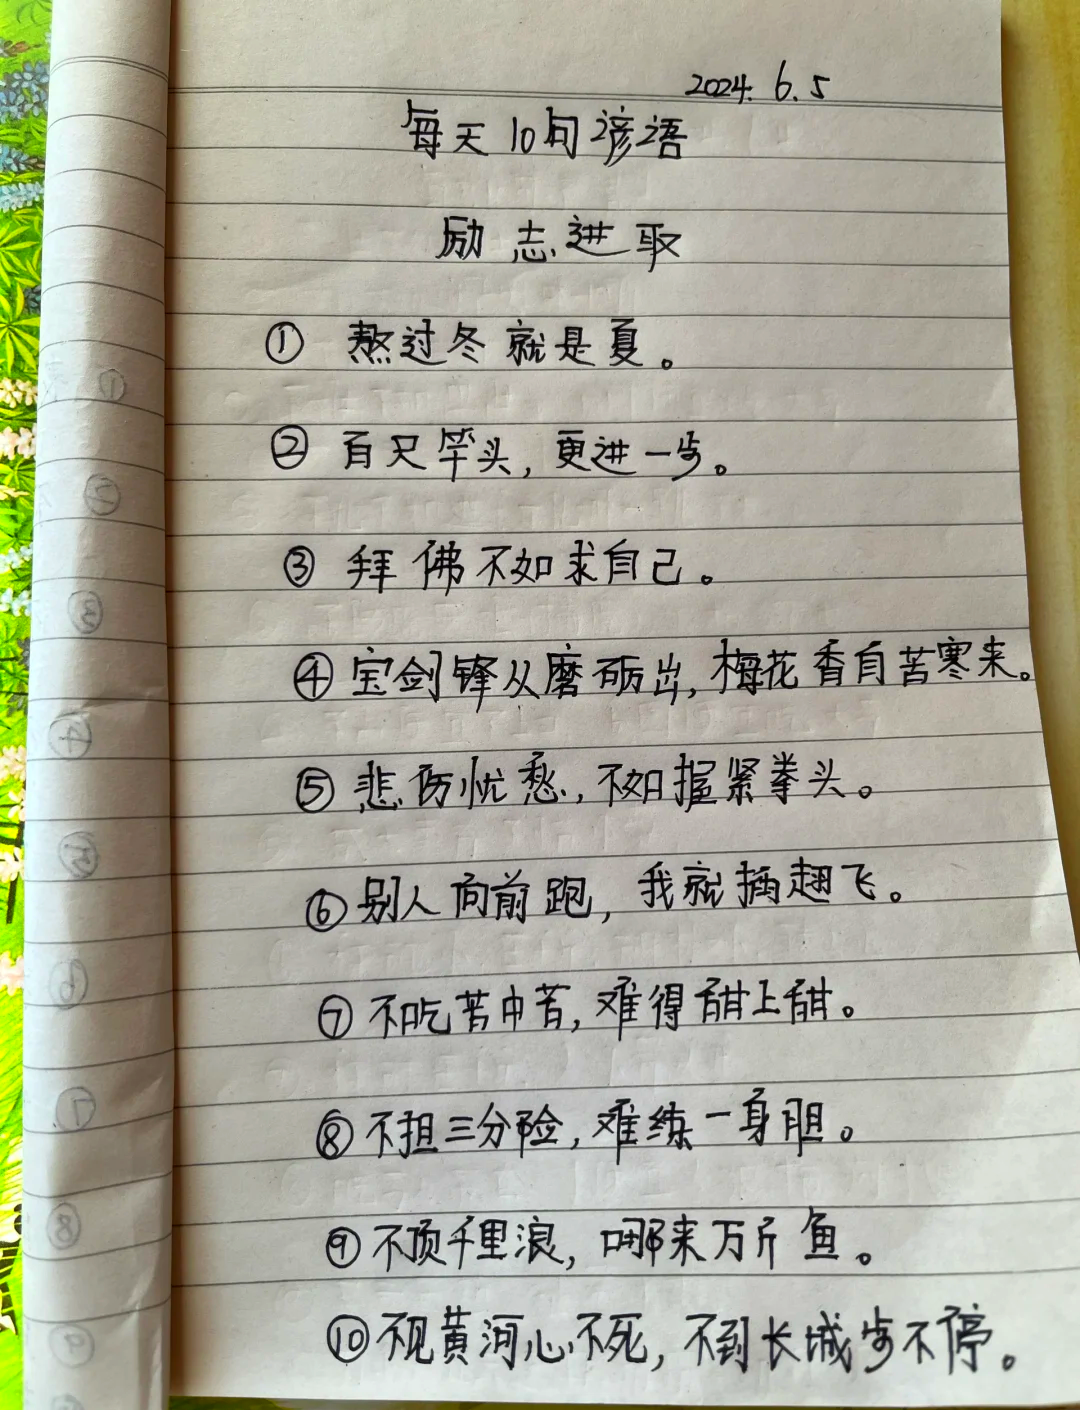 2024.6.5
每天10句谚语
励志进取
① 熬过冬就是夏。
② 百尺竿头,更进一步。
③ 拜佛不如求自己。
④ 宝剑锋从磨砺出,梅花香自苦寒来。
⑤ 悲伤忧愁,不如握紧拳头。
⑥ 别人向前跑,我就插翅飞。
⑦ 不吃苦中苦,难得甜上甜。
⑧ 不担三分险,难练一身胆。
⑨ 不顶千里浪,哪来万斤鱼。
⑩ 不见黄河心不死,不到长城步不停。